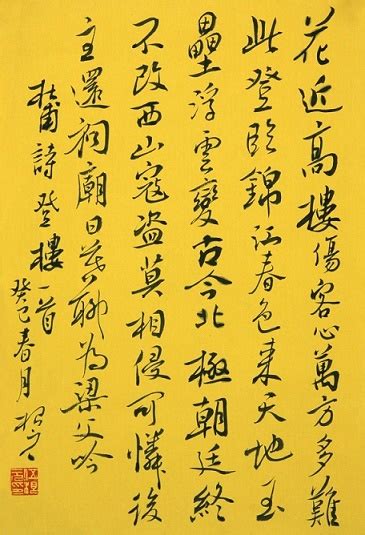 花近高樓傷客心萬方多難
此登臨錦江春色來天地玉
壘浮雲變古今北極朝廷終
不改西山寇盜莫相侵可憐後
主還祠廟日暮聊為梁父吟
杜甫詩登樓一首
癸巳春月